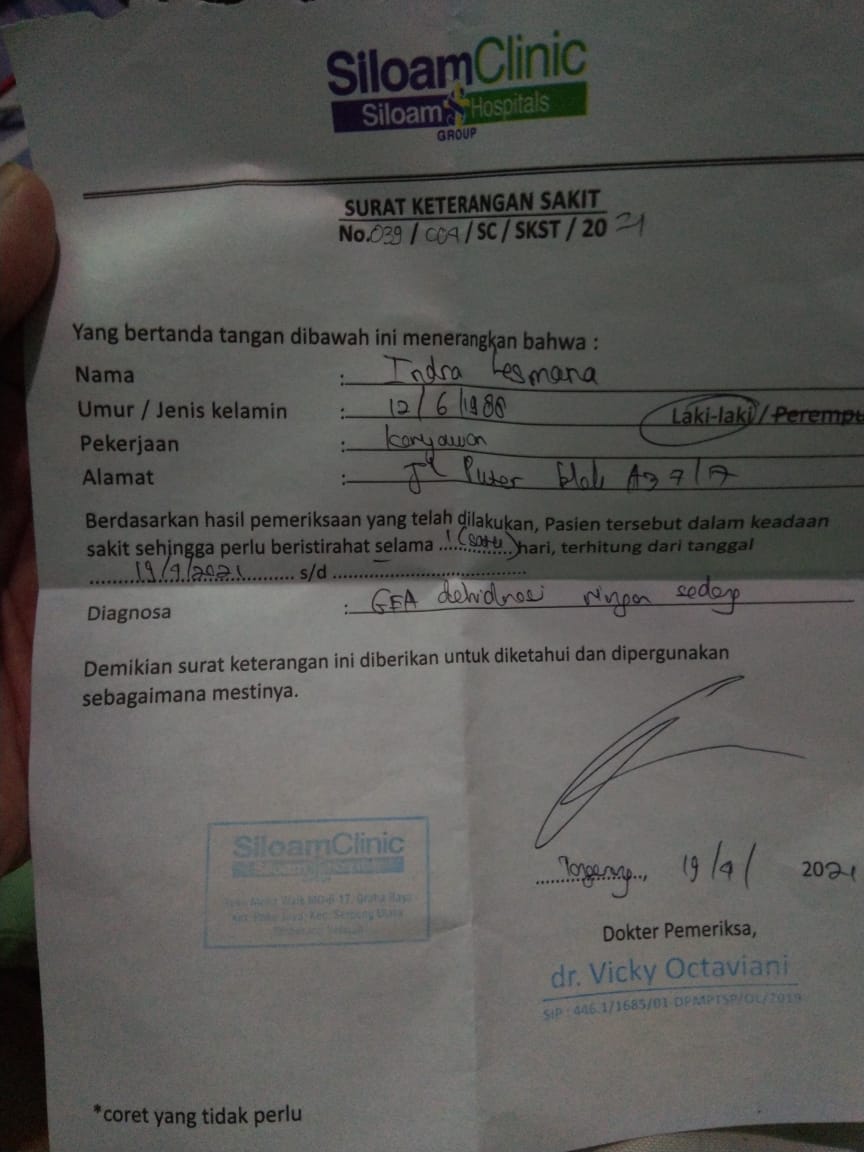 SiloamClinic
Siloam Hospitals
GROUP
SURAT KETERANGAN SAKIT
No. 039 / 004 / SC / SKST / 2021
Yang bertanda tangan dibawah ini menerangkan bahwa :
Nama : Indra Lesmana
Umur / Jenis kelamin : 12/6/1988 Laki-laki / Peremp
Pekerjaan : karyawan
Alamat : Jl Puter blok
Berdasarkan hasil pemeriksaan yang telah dilakukan, Pasien tersebut dalam keadaan
sakit sehingga perlu beristirahat selama 1 (satu) hari, terhitung dari tanggal
19/9/2021 s/d
Diagnosa : GEA dehidrasi ringan sedang
Demikian surat keterangan ini diberikan untuk diketahui dan dipergunakan
sebagaimana mestinya.
SiloamClinic
Tangerang, 19/9/ 2021
Dokter Pemeriksa,
dr. Vicky Octaviani
SIP : 446.1/1685/01-DPMPTSP/OL/2019
*coret yang tidak perlu